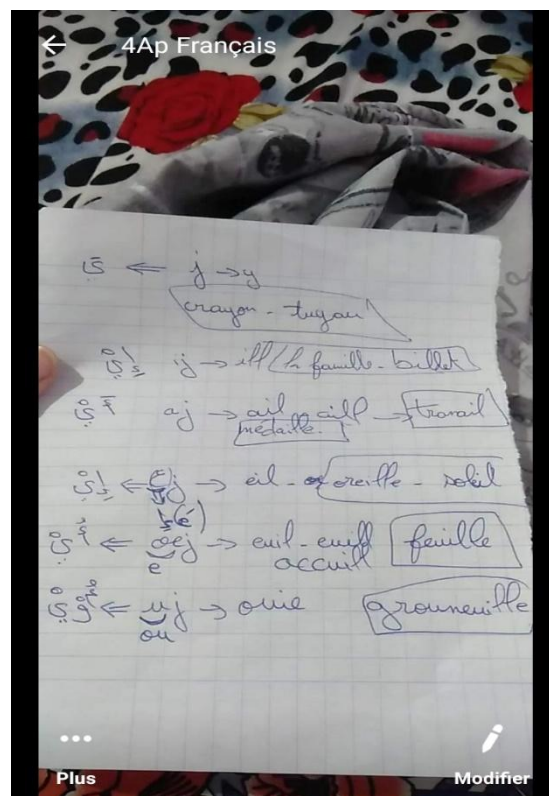 ← 4Ap Français
يْ ⇐ j → y
crayon - tuyau
إيْ ij → ill (la famille - billet
أيْ aj → ail - aill → travail
médaille.
إيْ ⇐ ej → eil - oreille - soleil
(é)
أيْ ⇐ oej → euil - euill feuille
e accuill
أُويْ ⇐ uj → ouie grouneuille
ou
Plus Modifier